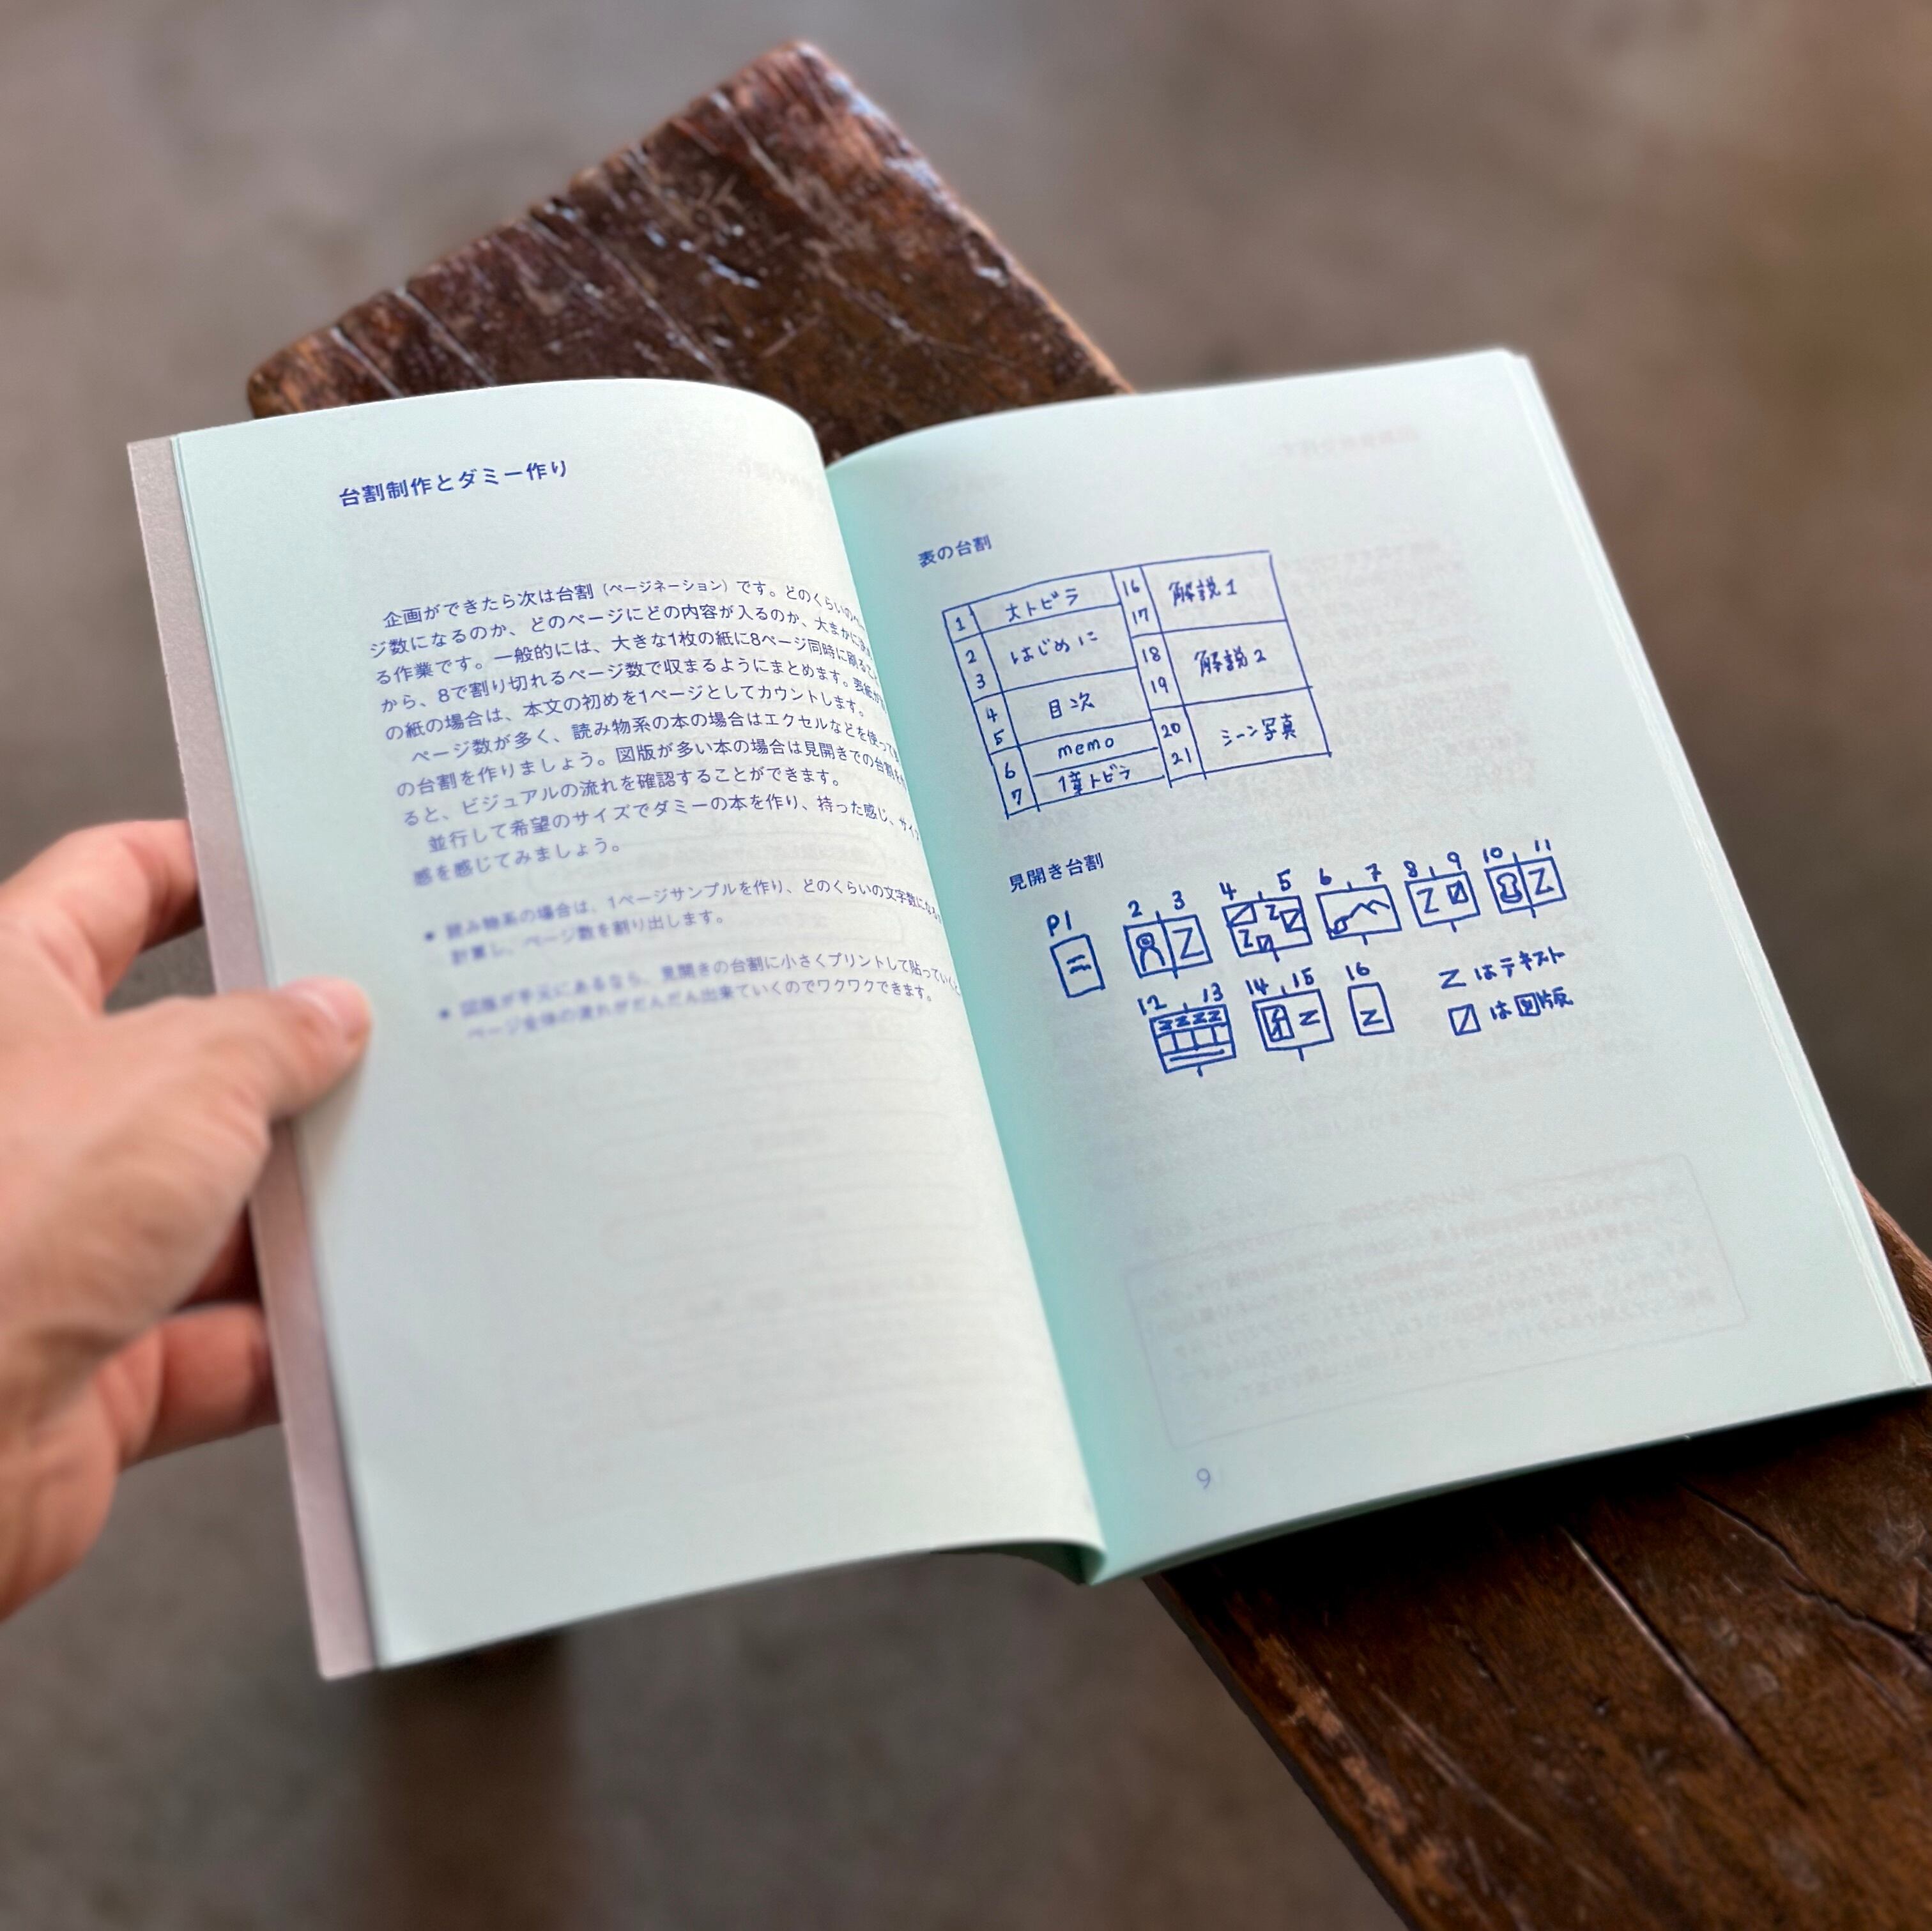 台割制作とダミー作り
企画ができたら次は台割（ページネーション）です。どのくらいのペー
ジ数になるのか、どのページにどの内容が入るのか、大まかに決め
る作業です。一般的には、大きな1枚の紙に8ページ同時に刷ること
から、8で割り切れるページ数で収まるようにまとめます。表紙が別
の紙の場合は、本文の初めを1ページとしてカウントします。
ページ数が多く、読み物系の本の場合はエクセルなどを使って
の台割を作りましょう。図版が多い本の場合は見開きでの台割を
ると、ビジュアルの流れを確認することができます。
並行して希望のサイズでダミーの本を作り、持った感じ、サイズ
感を感じてみましょう。
● 読み物系の場合は、1ページサンプルを作り、どのくらいの文字数になる
計算し、ページ数を割り出します。
● 図版が手元にあるなら、見開きの台割に小さくプリントして貼っていくと
ページ全体の流れがだんだん出来ていくのでワクワクできます。
表の台割
1 大トビラ
2 3 はじめに
4 5 目次
6 memo
7 1章トビラ
16 17 解説1
18 19 解説2
20 21 シーン写真
見開き台割
P1 2 3 4 5 6 7 8 9 10 11
Z Z Z Z Z
12 13 14 15 16
Z Z Z Z Z Z
Z はテキスト
は図版
9